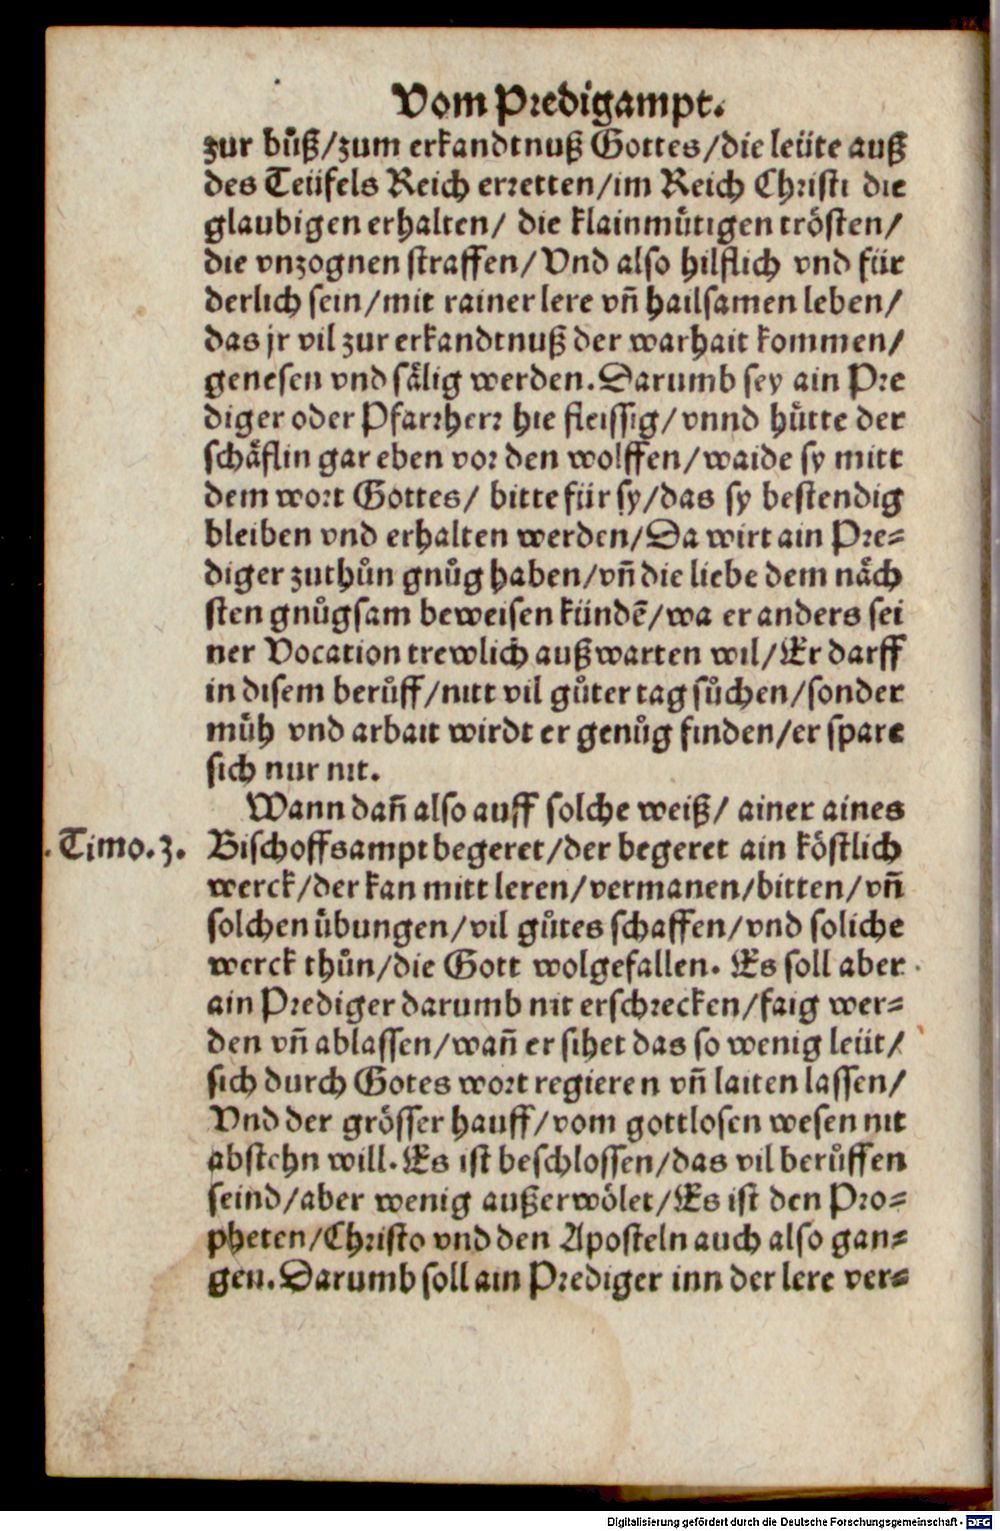 Vom Predigampt.
zur bůß/zum erkandtnuß Gottes/die leüte auß
des Teüfels Reich erretten/im Reich Christi die
glaubigen erhalten/ die klainmůtigen trösten/
die vnzognen straffen/Vnd also hilflich vnd für
derlich sein/mit rainer lere vñ hailsamen leben/
das jr vil zur erkandtnuß der warhait kommen/
genesen vnd sälig werden.Darumb sey ain Pre
diger oder Pfarrherr hie fleissig/vnnd hůtte der
schäflin gar eben vor den wolffen/waide sy mitt
dem wort Gottes/ bitte für sy/das sy bestendig
bleiben vnd erhalten werden/Da wirt ain Pre=
diger zuthůn gnůg haben/vñ die liebe dem näch
sten gnůgsam beweisen kündẽ/wa er anders sei
ner Vocation trewlich außwarten wil/Er darff
in disem berůff/nitt vil gůter tag sůchen/sonder
můh vnd arbait wirdt er genůg finden/er spare
sich nur nit.
Wann dañ also auff solche weiß/ ainer aines
. Timo.3. Bischoffsampt begeret/der begeret ain köstlich
werck/der kan mitt leren/vermanen/bitten/vñ
solchen übungen/vil gůtes schaffen/vnd soliche
werck thůn/die Gott wolgefallen. Es soll aber
ain Prediger darumb nit erschrecken/faig wer=
den vñ ablassen/wañ er sihet das so wenig leüt/
sich durch Gotes wort regieren vñ laiten lassen/
Vnd der grösser hauff/vom gottlosen wesen nit
abstehn will.Es ist beschlossen/das vil berůffen
seind/aber wenig außerwölet/Es ist den Pro=
pheten/Christo vnd den Aposteln auch also gan=
gen.Darumb soll ain Prediger inn der lere ver=
Digitalisierung gefördert durch die Deutsche Forschungsgemeinschaft - DFG